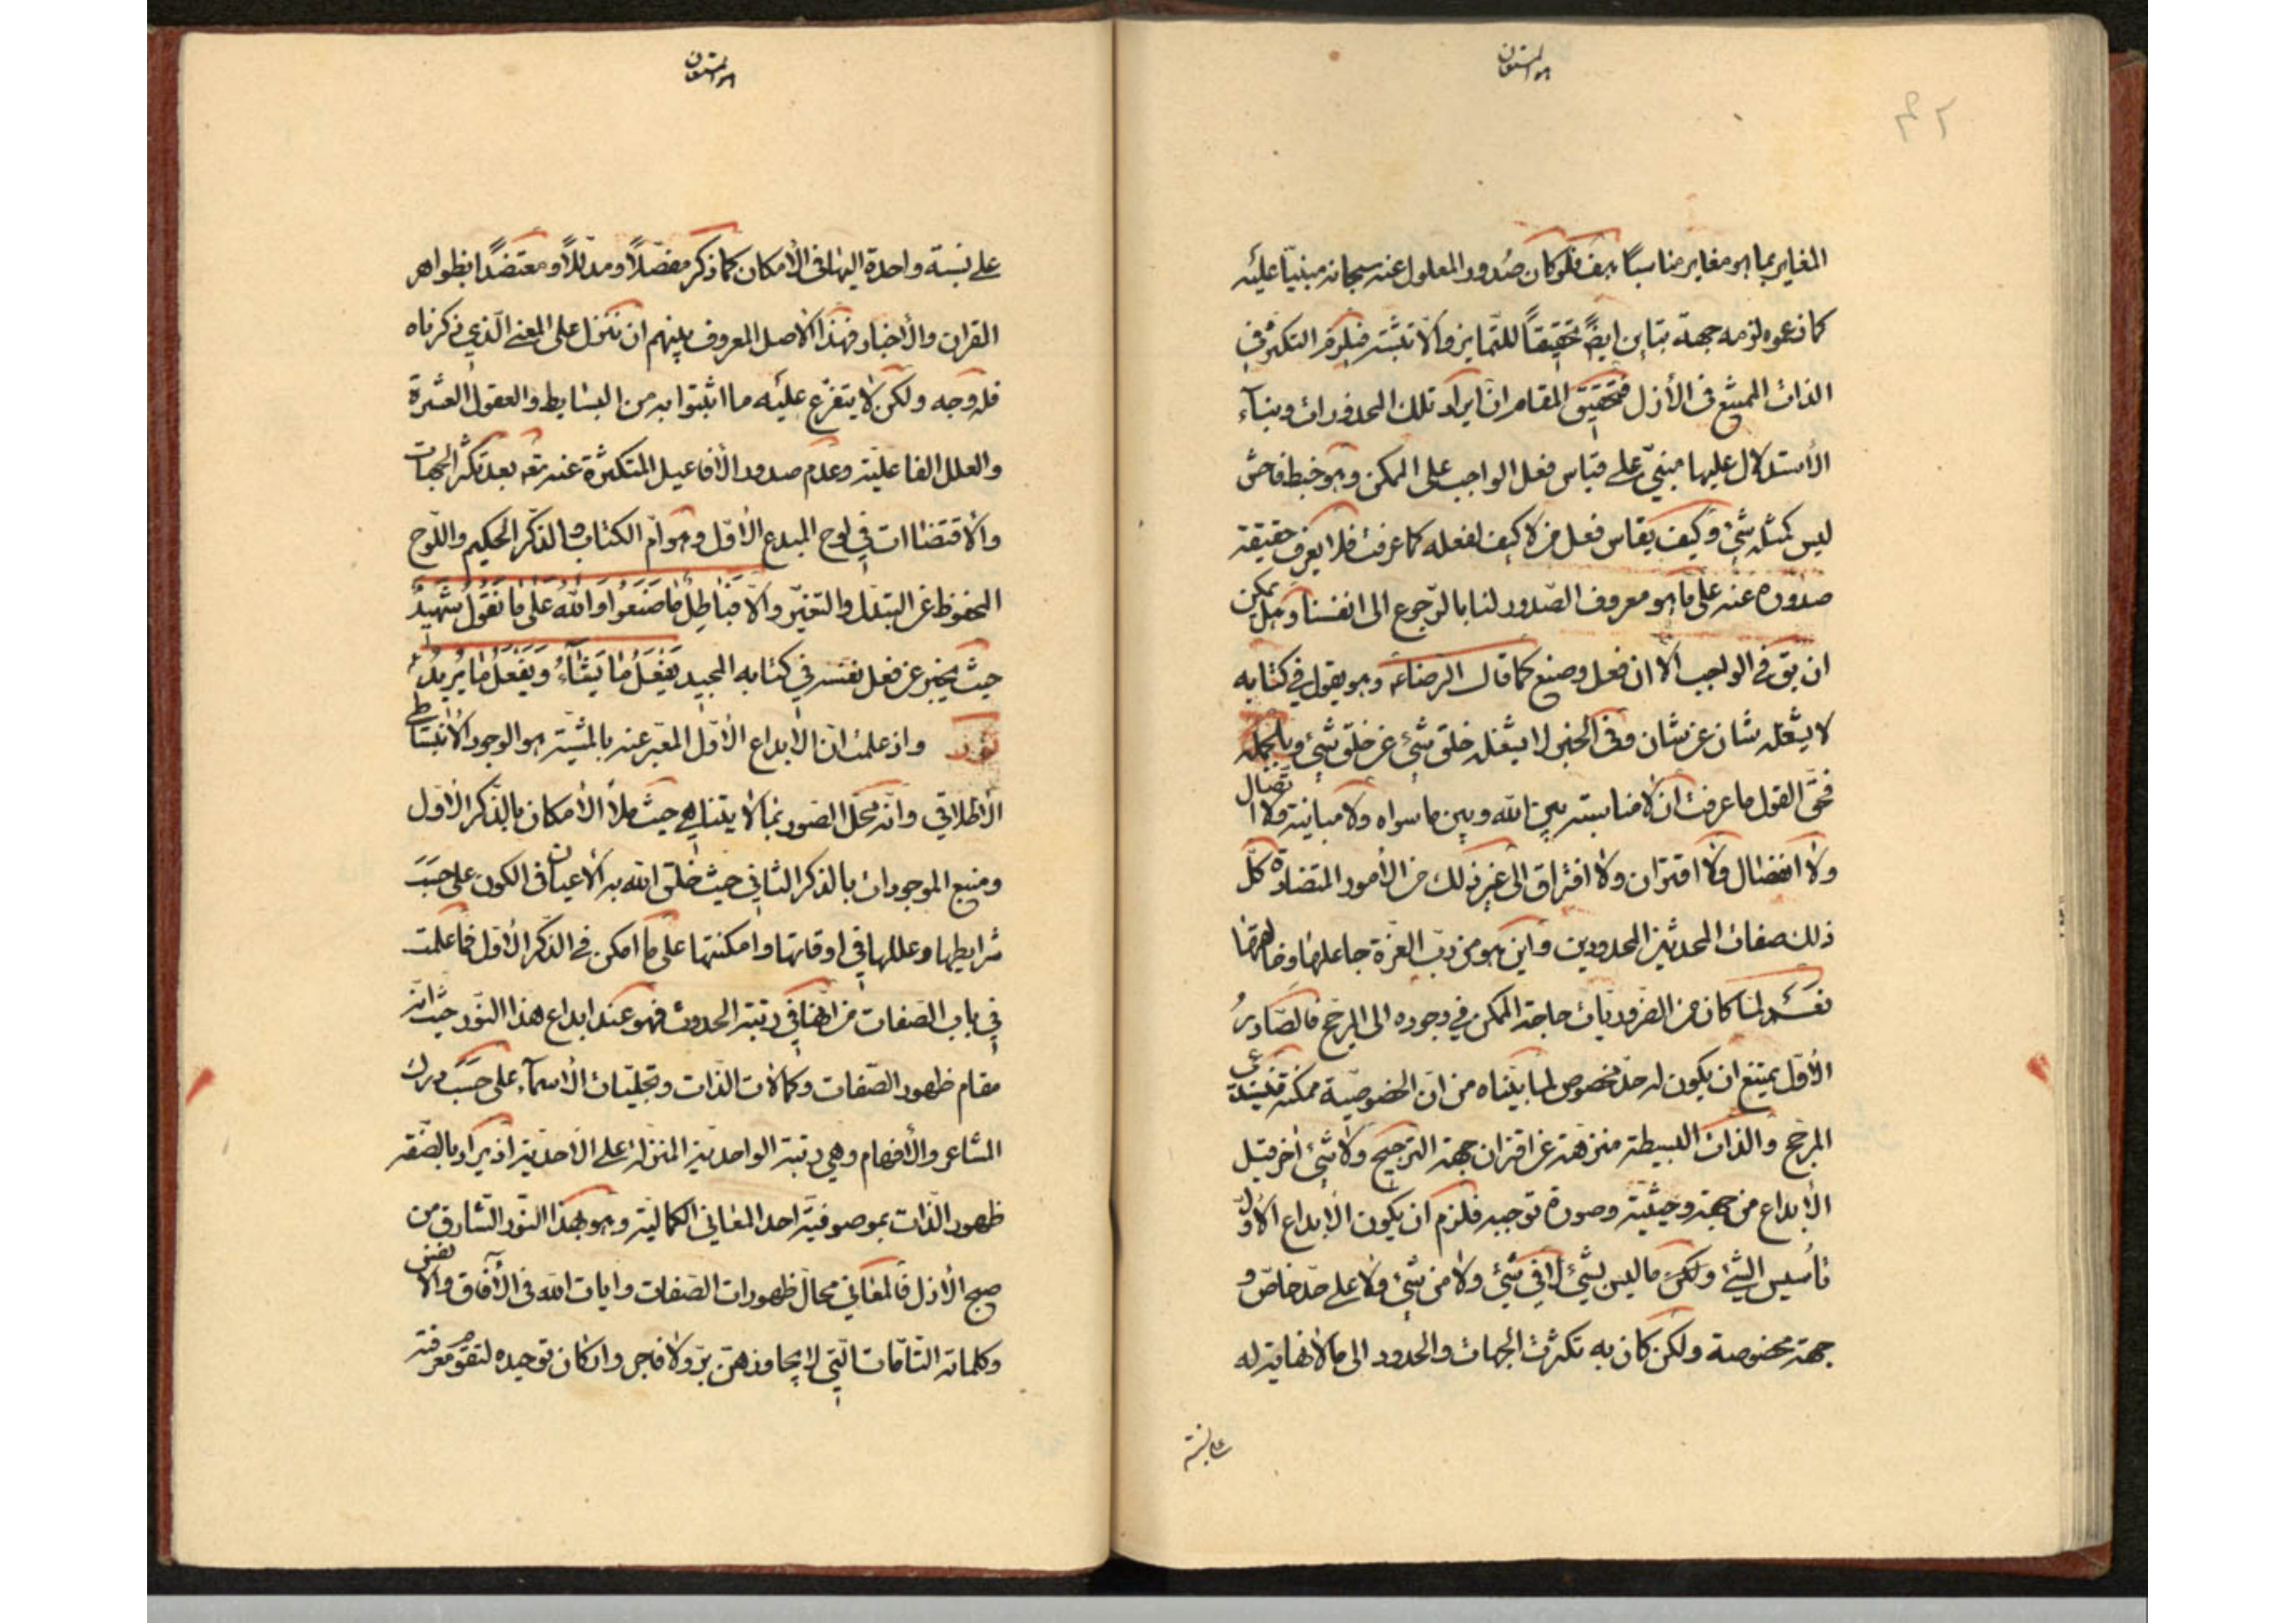 هو المستعان
٤٢
المغاير بما هو مغاير مناسبًا هف فلو كان صُدور المعلول عنه سبحانه مبنيّا عليه
كما زعموه لزمه جهة تباين ايضًا تحقيقًا للتّمايز والّا تشبّثه فيلزم التكثّر في
الذات الممتنع في الأزل فتحقيق المقام انّ ايراد تلك المحذورات وبنآء
الأستدلال عليها مبنيّ على قياس فعل الواجب على الممكن وهو خبط فاحش
ليس كمثله شئ وكيف يقاس فعل من لا كيف لفعله كما عرفت فلا يعرف حقيقة
صدوره عنه على ما هو معروف الصّدور لنا بالرّجوع الى انفسنا وهل يمكن
ان يق في الواجب الّا ان فعل وصنع كما قال الرضا عه وهو يقول في كتابه
لا يشغله شان عن شان وفي الخبر لا يشغله خلق شئ عن خلق شئ وبالجمله
فحقّ القول ما عرفت ان لا مناسبة بين الله وبين ما سواه ولا مباينة ولا اتّصال
ولا انفصال ولا اقتران ولا افتراق الى غير ذلك من الأمور المتضادّة كلّ
ذلك صفات المحدثين المحدودين واين هو من ربّ العزّة جاعلها وخالقها
نعم لمّا كان من الضروريّات حاجة الممكن في وجوده الى المرجّح فالصّادرُ
الأوّل يمتنع ان يكون له حدّ مخصوص لما بيّنّاه من انّ الخصوصيّة ممكنة فتستدعي
المرجّح والذات البسيطة منزهة عن اقتران جهة الترجيح ولا شئ اخر قبل
الأبداع من جهة وحيثيّة وصورة توجبه فلزم ان يكون الأبداع الأوّل
تأسيس الشئ ولكن ما ليس لشئ لا في شئ ولا من شئ ولا على حدّ خاصّ و
جهة مخصوصة ولكن كان به تكثرت الجهات والحدود الى ما لا نهاية له
على نسبة
هو المستعان
على نسبة واحدة اليها في الأمكان كما ذكر مفصّلًا ومدلّلًا ومعتضدًا بظواهر
القران والأخبار فهذا الأصل المعروف بينهم ان نتنزل على المعنى الّذي ذكرناه
فله وجه ولكن لا يتفرّع عليه ما اثبتوا به من البسايط والعقول العشرة
والعلل الفاعليّة وعدم صدور الأفاعيل المتكثرة عنه تعه بعد تكثّر الجهات
والأقتضاات في لوح المبدع الأوّل وهو امّ الكتاب والذّكر الحكيم واللّوح
المحفوظ عن التبدّل والتغيّر والّا فبَاطِلٌ مَا صَنَعُوا وَاللهُ عَلى مَا نَقُولُ شَهِيدٌ
حيث يخبر عن فعل نفسه في كتابه المجيد يَفْعَلُ مَا يَشَآءُ وَيَفْعَلُ مَا يُرِيدُ
نور واذ علمت انّ الأبداع الأوّل المعبّر عنه بالمشيّة هو الوجود الأنبساطي
الأطلاقي وانّه محلّ الصّور بما لا يتناهى حيث ملأ الأمكان بالذّكر الأوّل
ومنبع الموجودات بالذكر الثاني حيث خلق الله به الأعيان في الكون على حسَبَ
شرايطها وعللها في اوقاتها وامكنتها على ما امكن في الذّكر الأوّل فما علمت
في باب الصّفات من انّها في رتبة الحدوث فهو عند ابداع هذا النّور حيث انّه
مقام ظهور الصّفات وكمالات الذّات وتجليّات الأسمآء على حسَبَ درك
المشاعر والأفهام وهي رتبة الواحديّة المنزلة على الأحديّة اذ يراد بالصّفة
ظهور الذّات بموصوفيّة احد المعاني الكماليّة وهو بهذا النّور الشّارق من
صبح الأزل فالمعاني محالّ ظهورات الصّفات وايات الله في الآفاق والأنفس
وكلماته التّامّات الّتي لا يجاوزهنّ برّ ولا فاجر وان كان توحيده لتقوّم معرفته